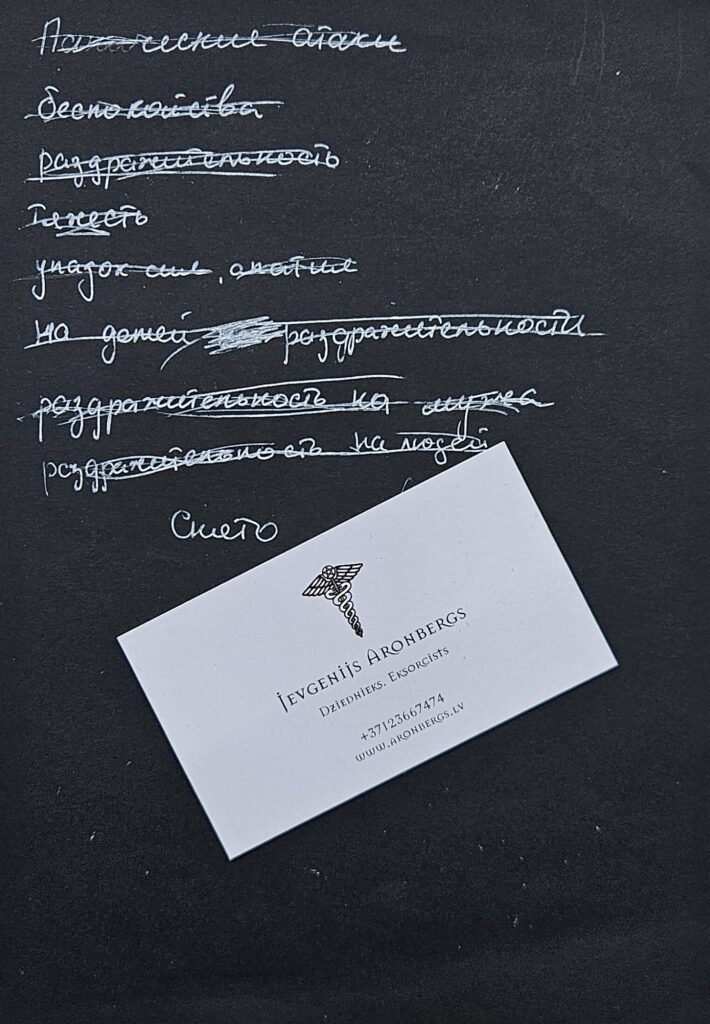 Панические атаки
беспокойства
раздражительность
тяжесть
упадок сил, апатия
на детей раздражительности
раздражительность на мужа
раздражительность на людей
Снято
Jevgenijs Aronbergs
Dziednieks, Eksorcists
+37123667474
www.aronbergs.lv